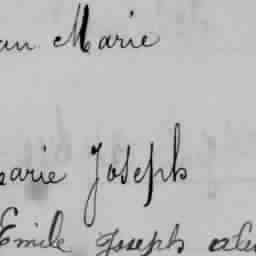 an Marie
arie Joseph
Emile Joseph